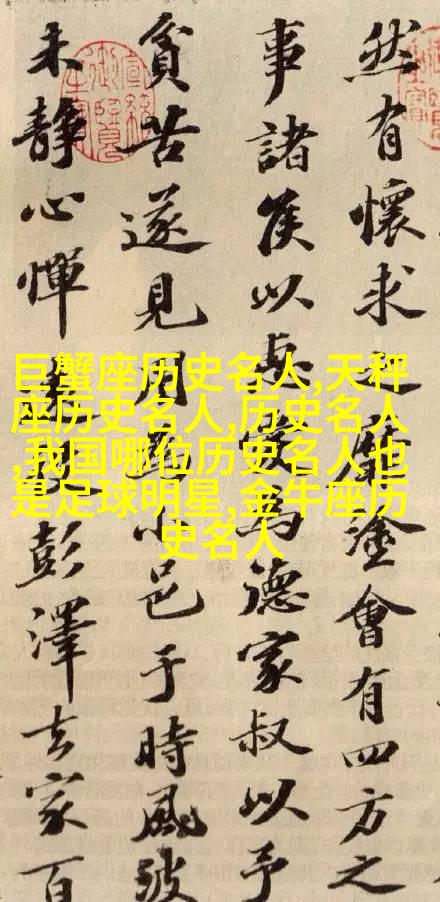 然有懷求之靡塗會有四方之
事諸侯以惠愛為德家叔以予
貧苦遂見用于小邑于時風波
未静心憚遠役彭澤去家百
巨蟹座历史名人,天秤
座历史名人,历史名人
,我国哪位历史名人也
是足球明星,金牛座历
史名人